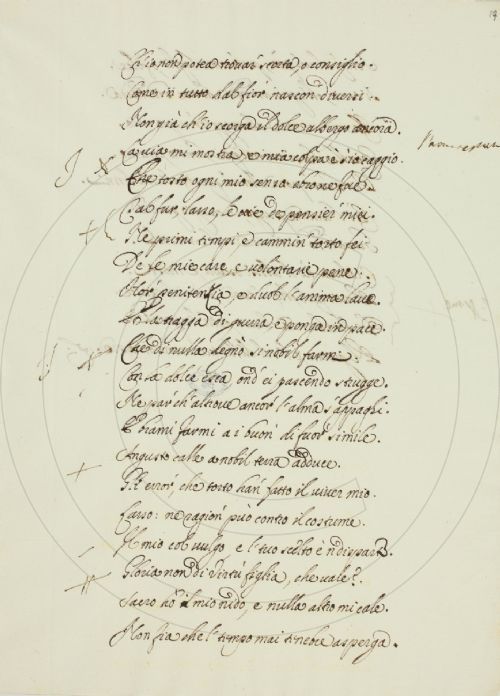 19
Ch'io non potea trovar scorta, o consiglio.
Come in tutto dal fior nascon diversi.
Non già ch'io scorga il dolce albergo ancora.
La via mi mostra, e mia colpa è s'io caggio.
torto ogni mio senso
Ch'al fin, lasso, de pensier miei.
Ne primi tempi e cammin torto fei
De le mie care, e volontarie pene.
penitenza, e l'anima lave.
tragga di guerra e ponga in pace.
Che di nulla degnò si nobil farmi.
Con la dolce esca, ond'ei pascendo strugge.
Ne par ch'altrove ancor l'alma s'appaghi.
farmi a i buon di fuor simile.
Angusto calle a nobil terra adduce.
Gli error, che torto han fatto il viver mio.
Lasso: ne ragion può contro il costume.
Il mio col vulgo, e 'l tuo scelto e'n disparte.
Gloria non di virtù figlia, che vale?
Sacro hò il mio nido, e nulla altro mi cale.
Non fia che 'l tempo mai tenebre asperga.